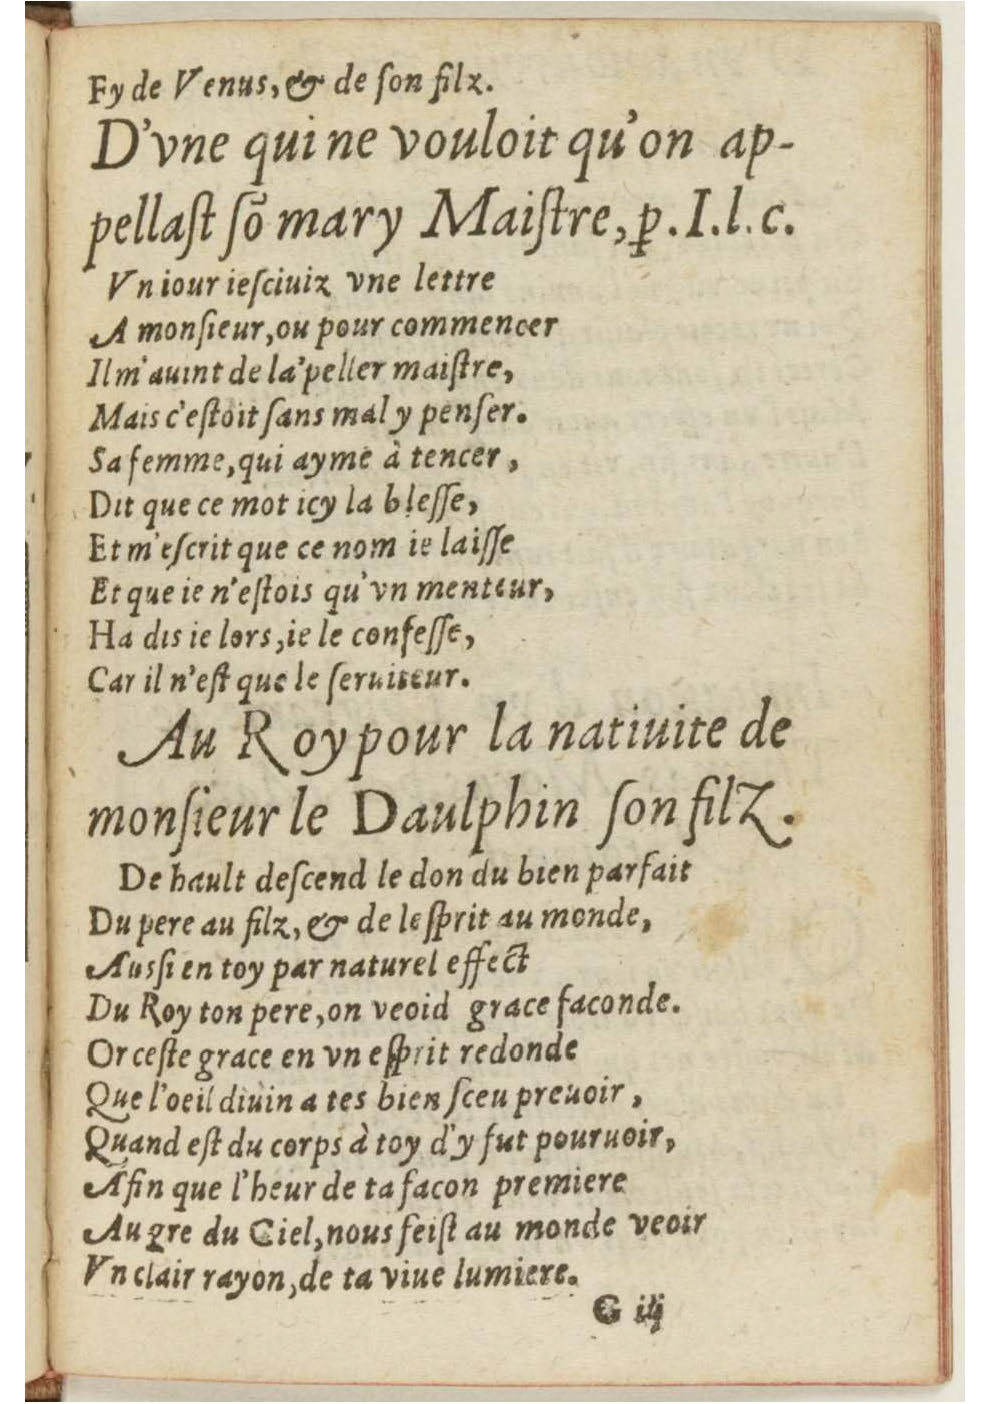 Fy de Venus, & de ſon filz.
D'vne qui ne vouloit qu'on ap-
pellaſt ſõ mary Maiſtre, ꝑ. I. l. c.
Vn iour ieſciuiz vne lettre
A monſieur, ou pour commencer
Il m'auint de la'peller maiſtre,
Mais c'eſtoit ſans mal y penſer.
Sa femme, qui ayme à tencer,
Dit que ce mot icy la bleſſe,
Et m'eſcrit que ce nom ie laiſſe
Et que ie n'eſtois qu'vn menteur,
Ha dis ie lors, ie le confeſſe,
Car il n'eſt que le ſeruiteur.
Au Roy pour la natiuite de
monſieur le Daulphin ſon filz.
De hault deſcend le don du bien parfait
Du pere au filz, & de leſprit au monde,
Auſſi en toy par naturel effect
Du Roy ton pere, on veoid grace faconde.
Or ceſte grace en vn eſprit redonde
Que l'oeil diuin a tes bien ſceu preuoir,
Quand eſt du corps à toy d'y fut pouruoir,
Afin que l'heur de ta facon premiere
Au gre du Ciel, nous feiſt au monde veoir
Vn clair rayon, de ta viue lumiere.
G iij